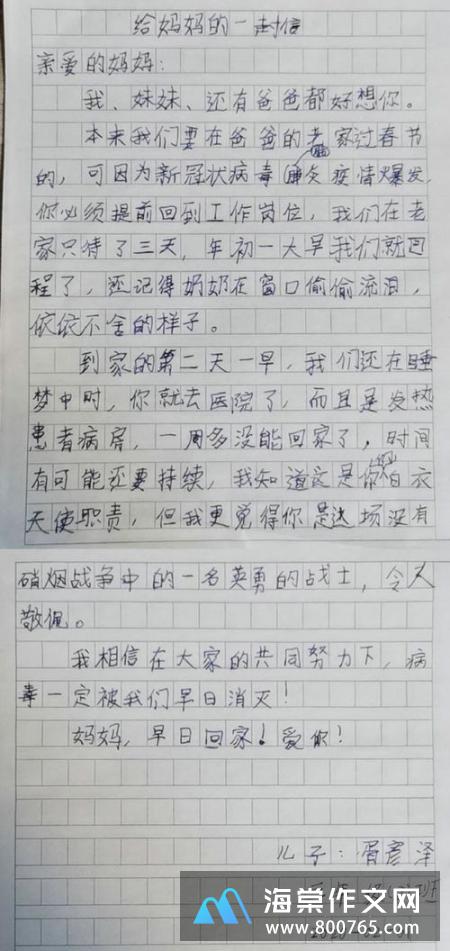 给妈妈的一封信
亲爱的妈妈：
我、妹妹、还有爸爸都好想你。
本来我们要在爸爸的老家过春节
的，可因为新冠状病毒肺炎疫情爆发，
你必须提前回到工作岗位，我们在老
家只待了三天，年初一大早我们就回
程了，还记得奶奶在窗口偷偷流泪，
依依不舍的样子。
到家的第二天一早，我们还在睡
梦中时，你就去医院了，而且是发热
患者病房，一周多没能回家了，时间
有可能还要持续，我知道这是你白衣
天使职责，但我更觉得你是这场没有
硝烟战争中的一名英勇的战士，令人
敬佩。
我相信在大家的共同努力下，病
毒一定被我们早日消灭！
妈妈，早日回家！爱你！
儿子：胥彦泽
班
海棠作文网
www.800765.com